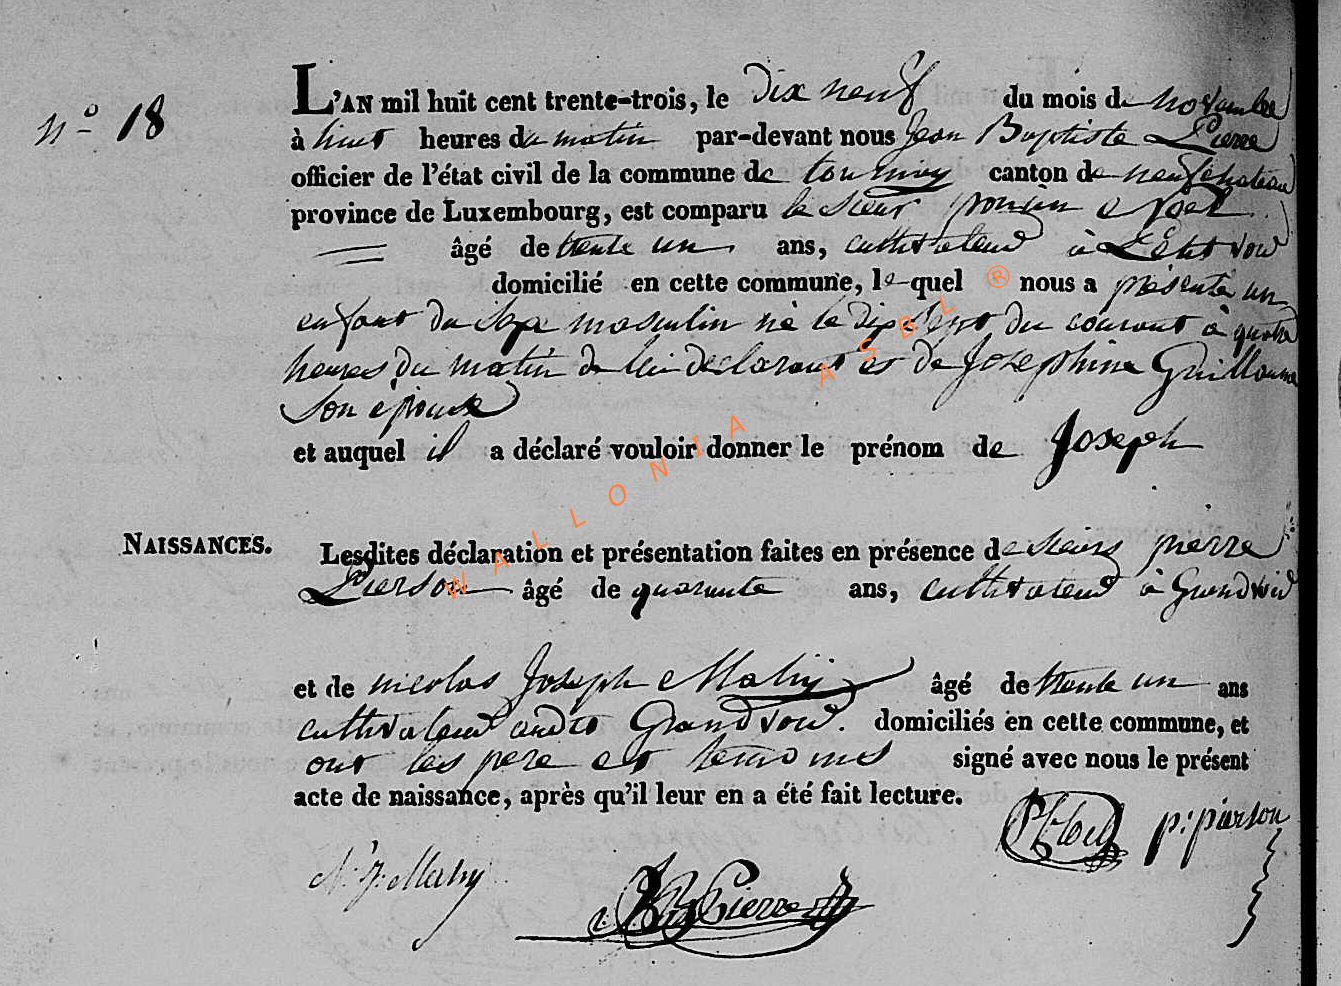 n° 18
L'AN mil huit cent trente-trois, le dix neuf du mois de novembre
à huit heures du matin par-devant nous Jean Baptiste Pierre
officier de l'état civil de la commune de tournay canton de neufchateau
province de Luxembourg, est comparu le sieur poncin Noel
âgé de trente un ans, cultivateur à
domicilié en cette commune, le quel nous a présenté un
enfant du sexe masculin né le dix sept du courant à quatre
heures du matin de lui déclarant et de Josephine Guillaume
son epouse
et auquel il a déclaré vouloir donner le prénom de Joseph
NAISSANCES.
Lesdites déclaration et présentation faites en présence de sieurs pierre
Pierson âgé de quarante ans, cultivateur à Grandvoir
et de nicolas Joseph Mahy âgé de trente un ans
cultivateur audit Grandvoir. domiciliés en cette commune, et
ont les pere et temoins signé avec nous le présent
acte de naissance, après qu'il leur en a été fait lecture.
P Noel p: pierson
N. J. Mahy
JB Pierre
WALLONIA ASBL ®